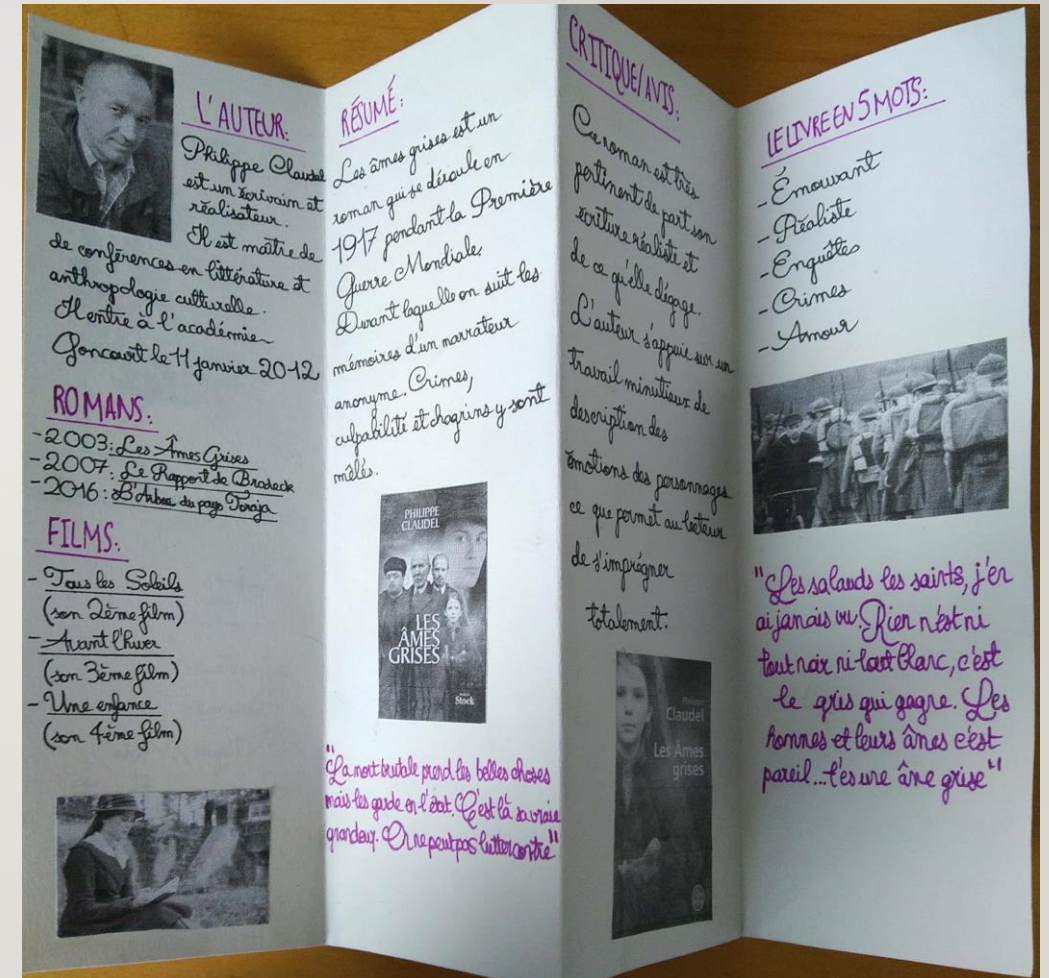 L'AUTEUR:
Philippe Claudel
est un écrivain et
réalisateur.
Il est maître de
de conférences en littérature et
anthropologie culturelle.
Il entre à l'académie
Goncourt le 11 janvier 2012
ROMANS:
-2003: Les Âmes Grises
-2007: Le Rapport de Brodeck
-2016: L'Arbre du pays Toraja
FILMS:
- Tous les Soleils
(son 2ème film)
- Avant l'hiver
(son 3ème film)
- Une enfance
(son 4ème film)
RÉSUMÉ:
Les âmes grises est un
roman qui se déroule en
1917 pendant la Première
Guerre Mondiale.
Durant laquelle on suit les
mémoires d'un narrateur
anonyme. Crimes,
culpabilité et chagrins y sont
mêlés.
PHILIPPE
CLAUDEL
LES
ÂMES
GRISES
Stock
"La mort brutale prend les belles choses
mais les garde en l'état. C'est là sa vraie
grandeur. On ne peut pas lutter contre"
CRITIQUE/AVIS:
Ce roman est très
pertinent de part son
écriture réaliste et
de ce qu'elle dégage.
L'auteur s'appuie sur un
travail minutieux de
description des
émotions des personnages
ce que permet au lecteur
de s'imprégner
totalement.
Philippe
Claudel
Les Âmes
grises
LE LIVRE EN 5 MOTS:
- Émouvant
- Réaliste
- Enquêtes
- Crimes
- Amour
"Les salauds les saints, j'en
ai jamais vu. Rien n'est ni
tout noir ni tout blanc, c'est
le gris qui gagne. Les
hommes et leurs âmes c'est
pareil... t'es une âme grise"